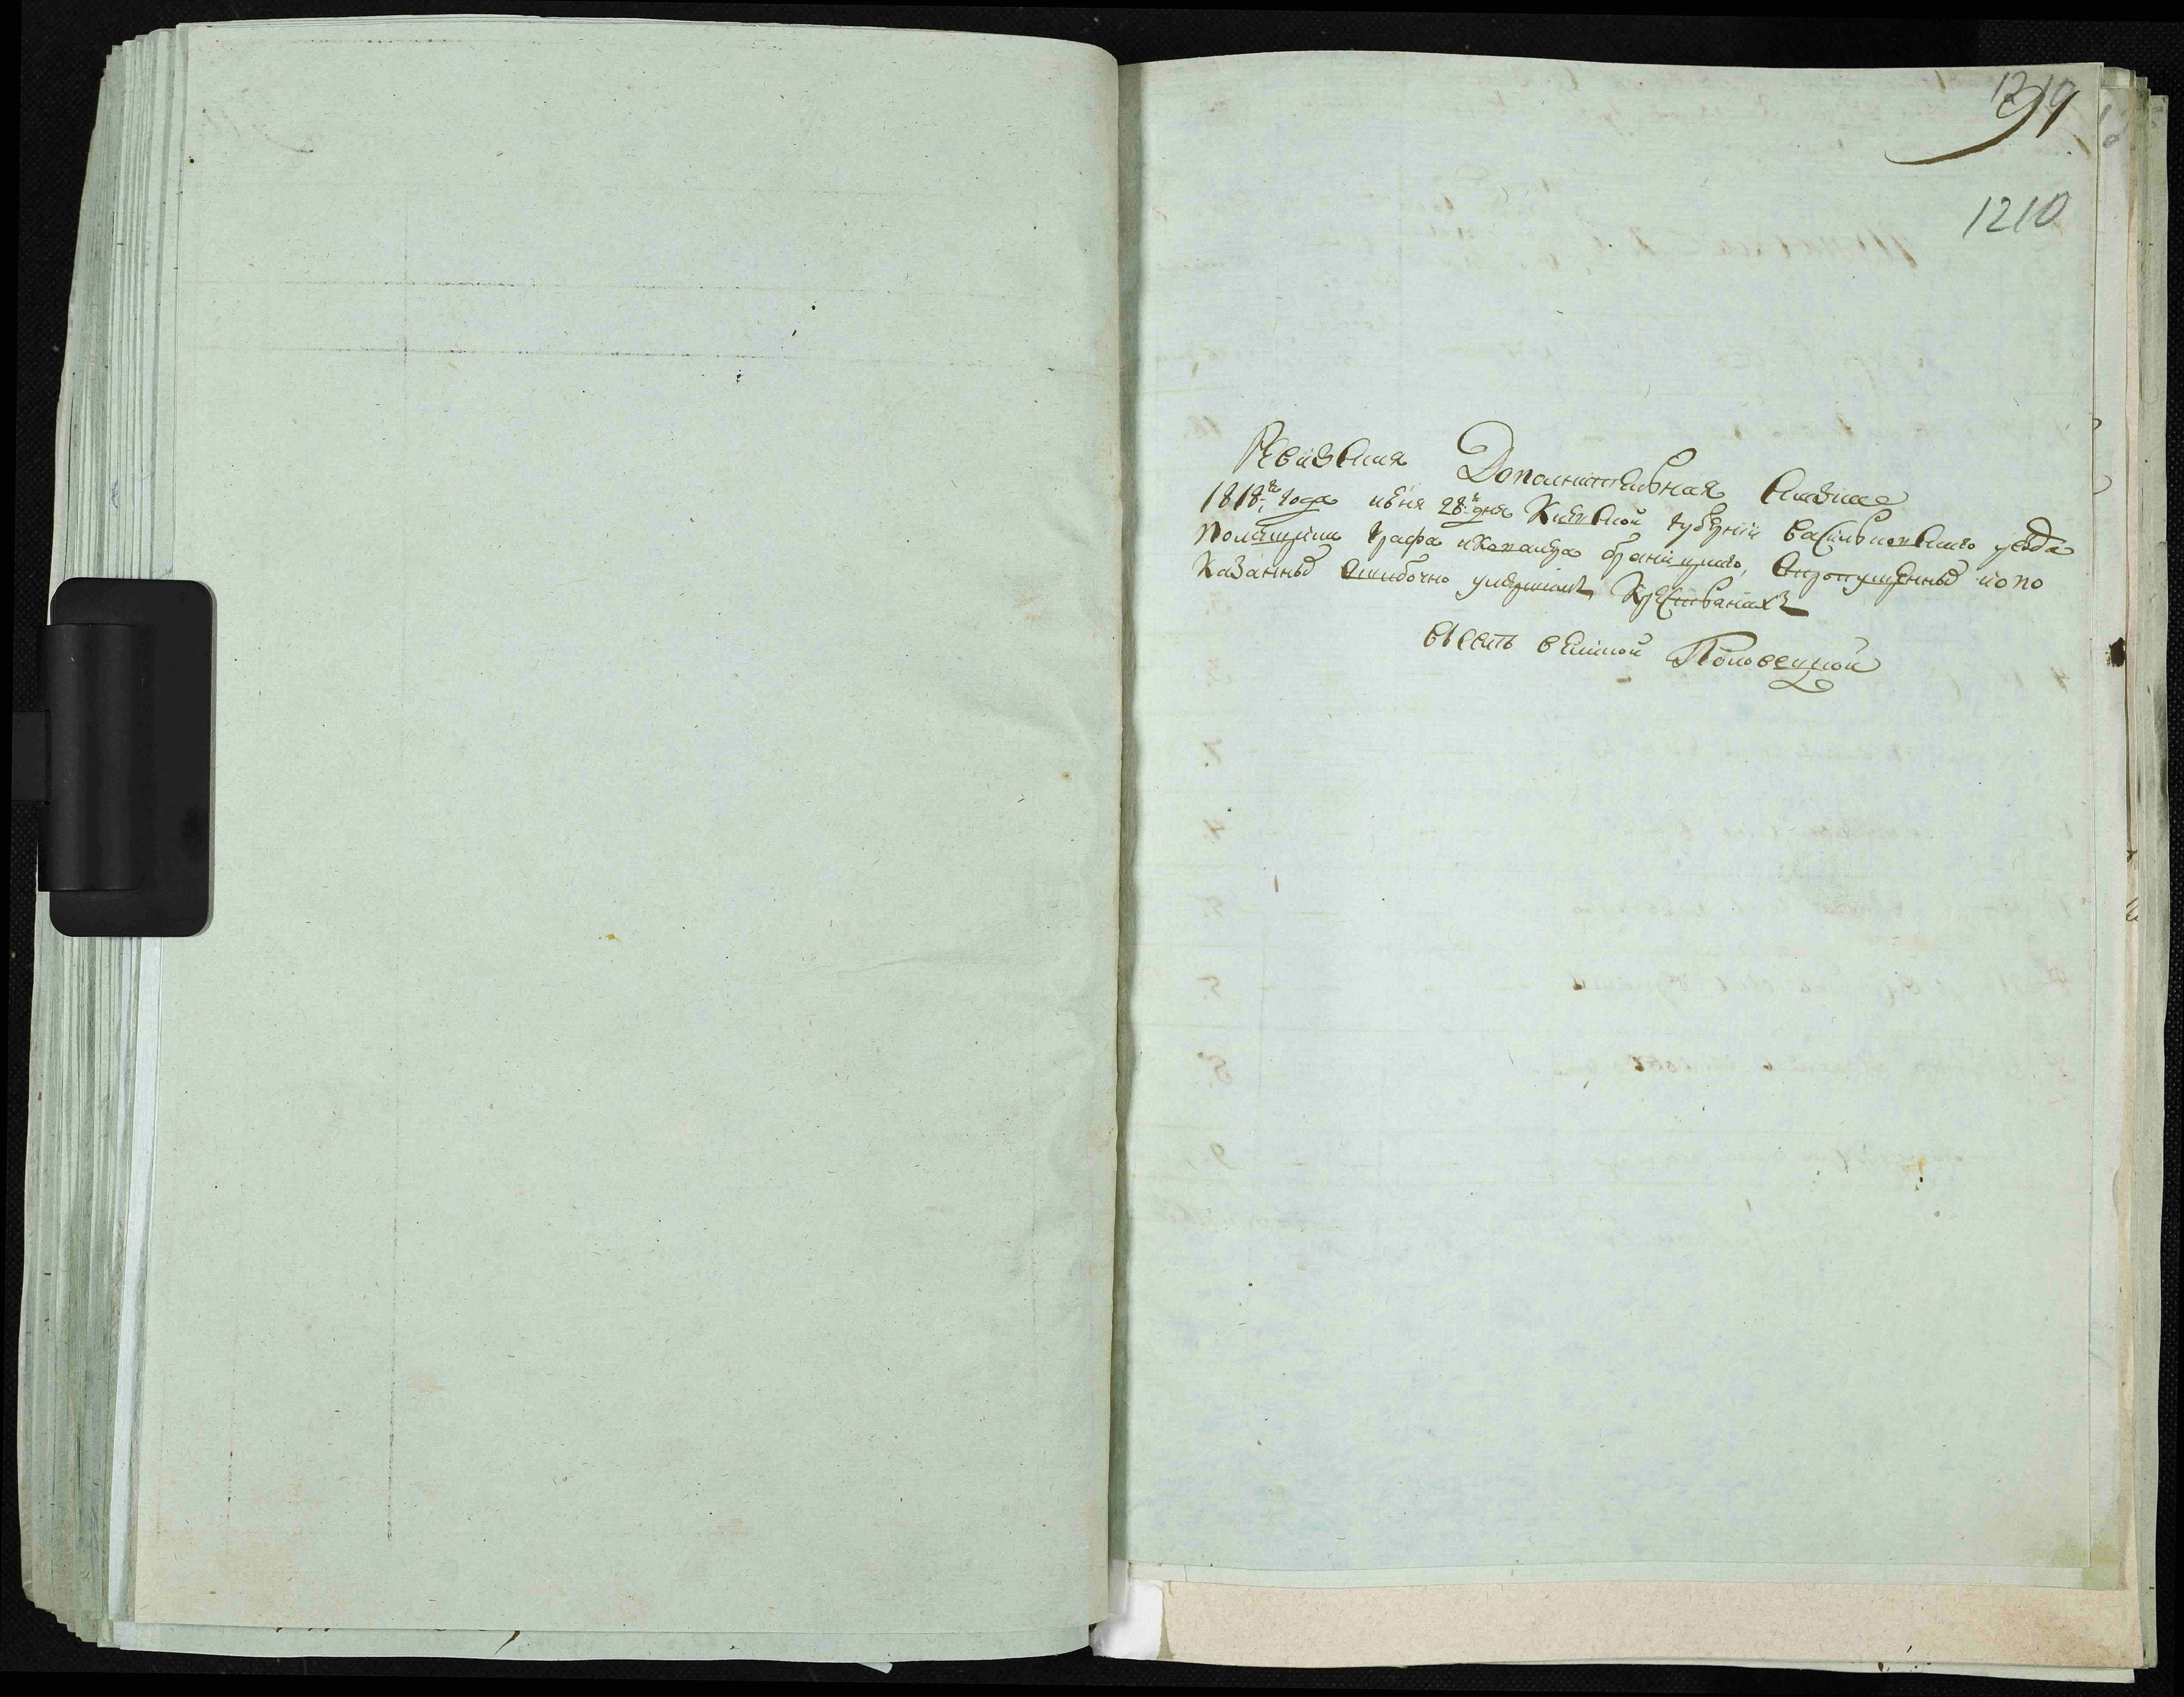 1219
1210
Ревизская Дополнительная сказка
1818го года июня 28го дня Киевской губернии васильковского уезда
помещика графа браницкого, опропущенных и по
казанных ошибочно умершими крестьянахъ
вместе великой Половецкой